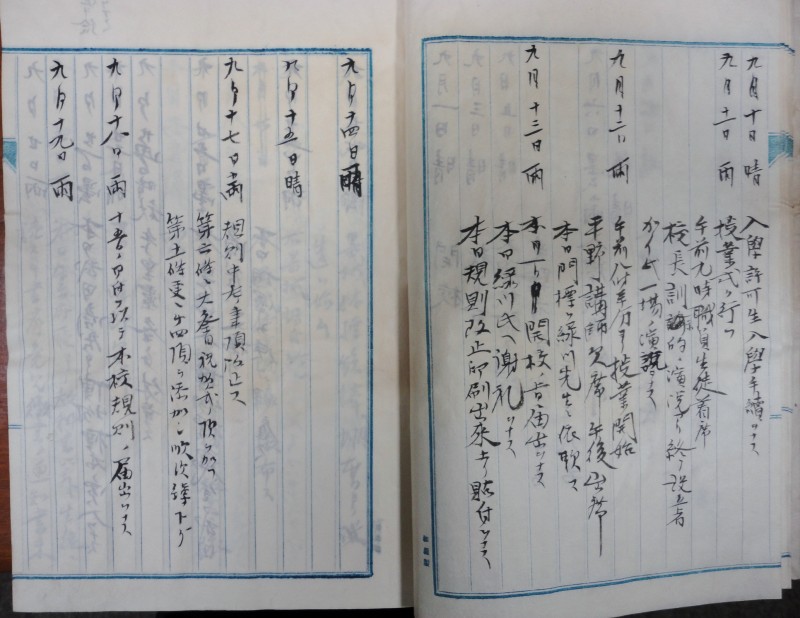 九月十日 晴
入學許可生入學手續ヲナス
九月十一日 雨
授業式ヲ行フ
午前九時職員生徒着席
校長訓諭的ノ演説ヲ終リ設立者
一場ノ演説ヲナス
九月十二日 雨
午前八時半分ヨリ授業開始
平野講師欠席 午後出席
九月十三日 雨
本日門標ヲ緑川先生ニ依頼ス
開校ノ旨届出ヲナス
本日緑川氏ヘ謝礼ヲナス
本日規則改正印刷出來ヨリ貼付ヲナス
九月十四日 晴
九月十五日 晴
九月十七日 雨
規則中左ノ事項改正ス
第六條ノ大祭日祝
第十一條ニ四項ヲ添加シ順次繰下ケ
九月十八日 雨
本校規則ノ届出ヲナス
九月十九日 雨